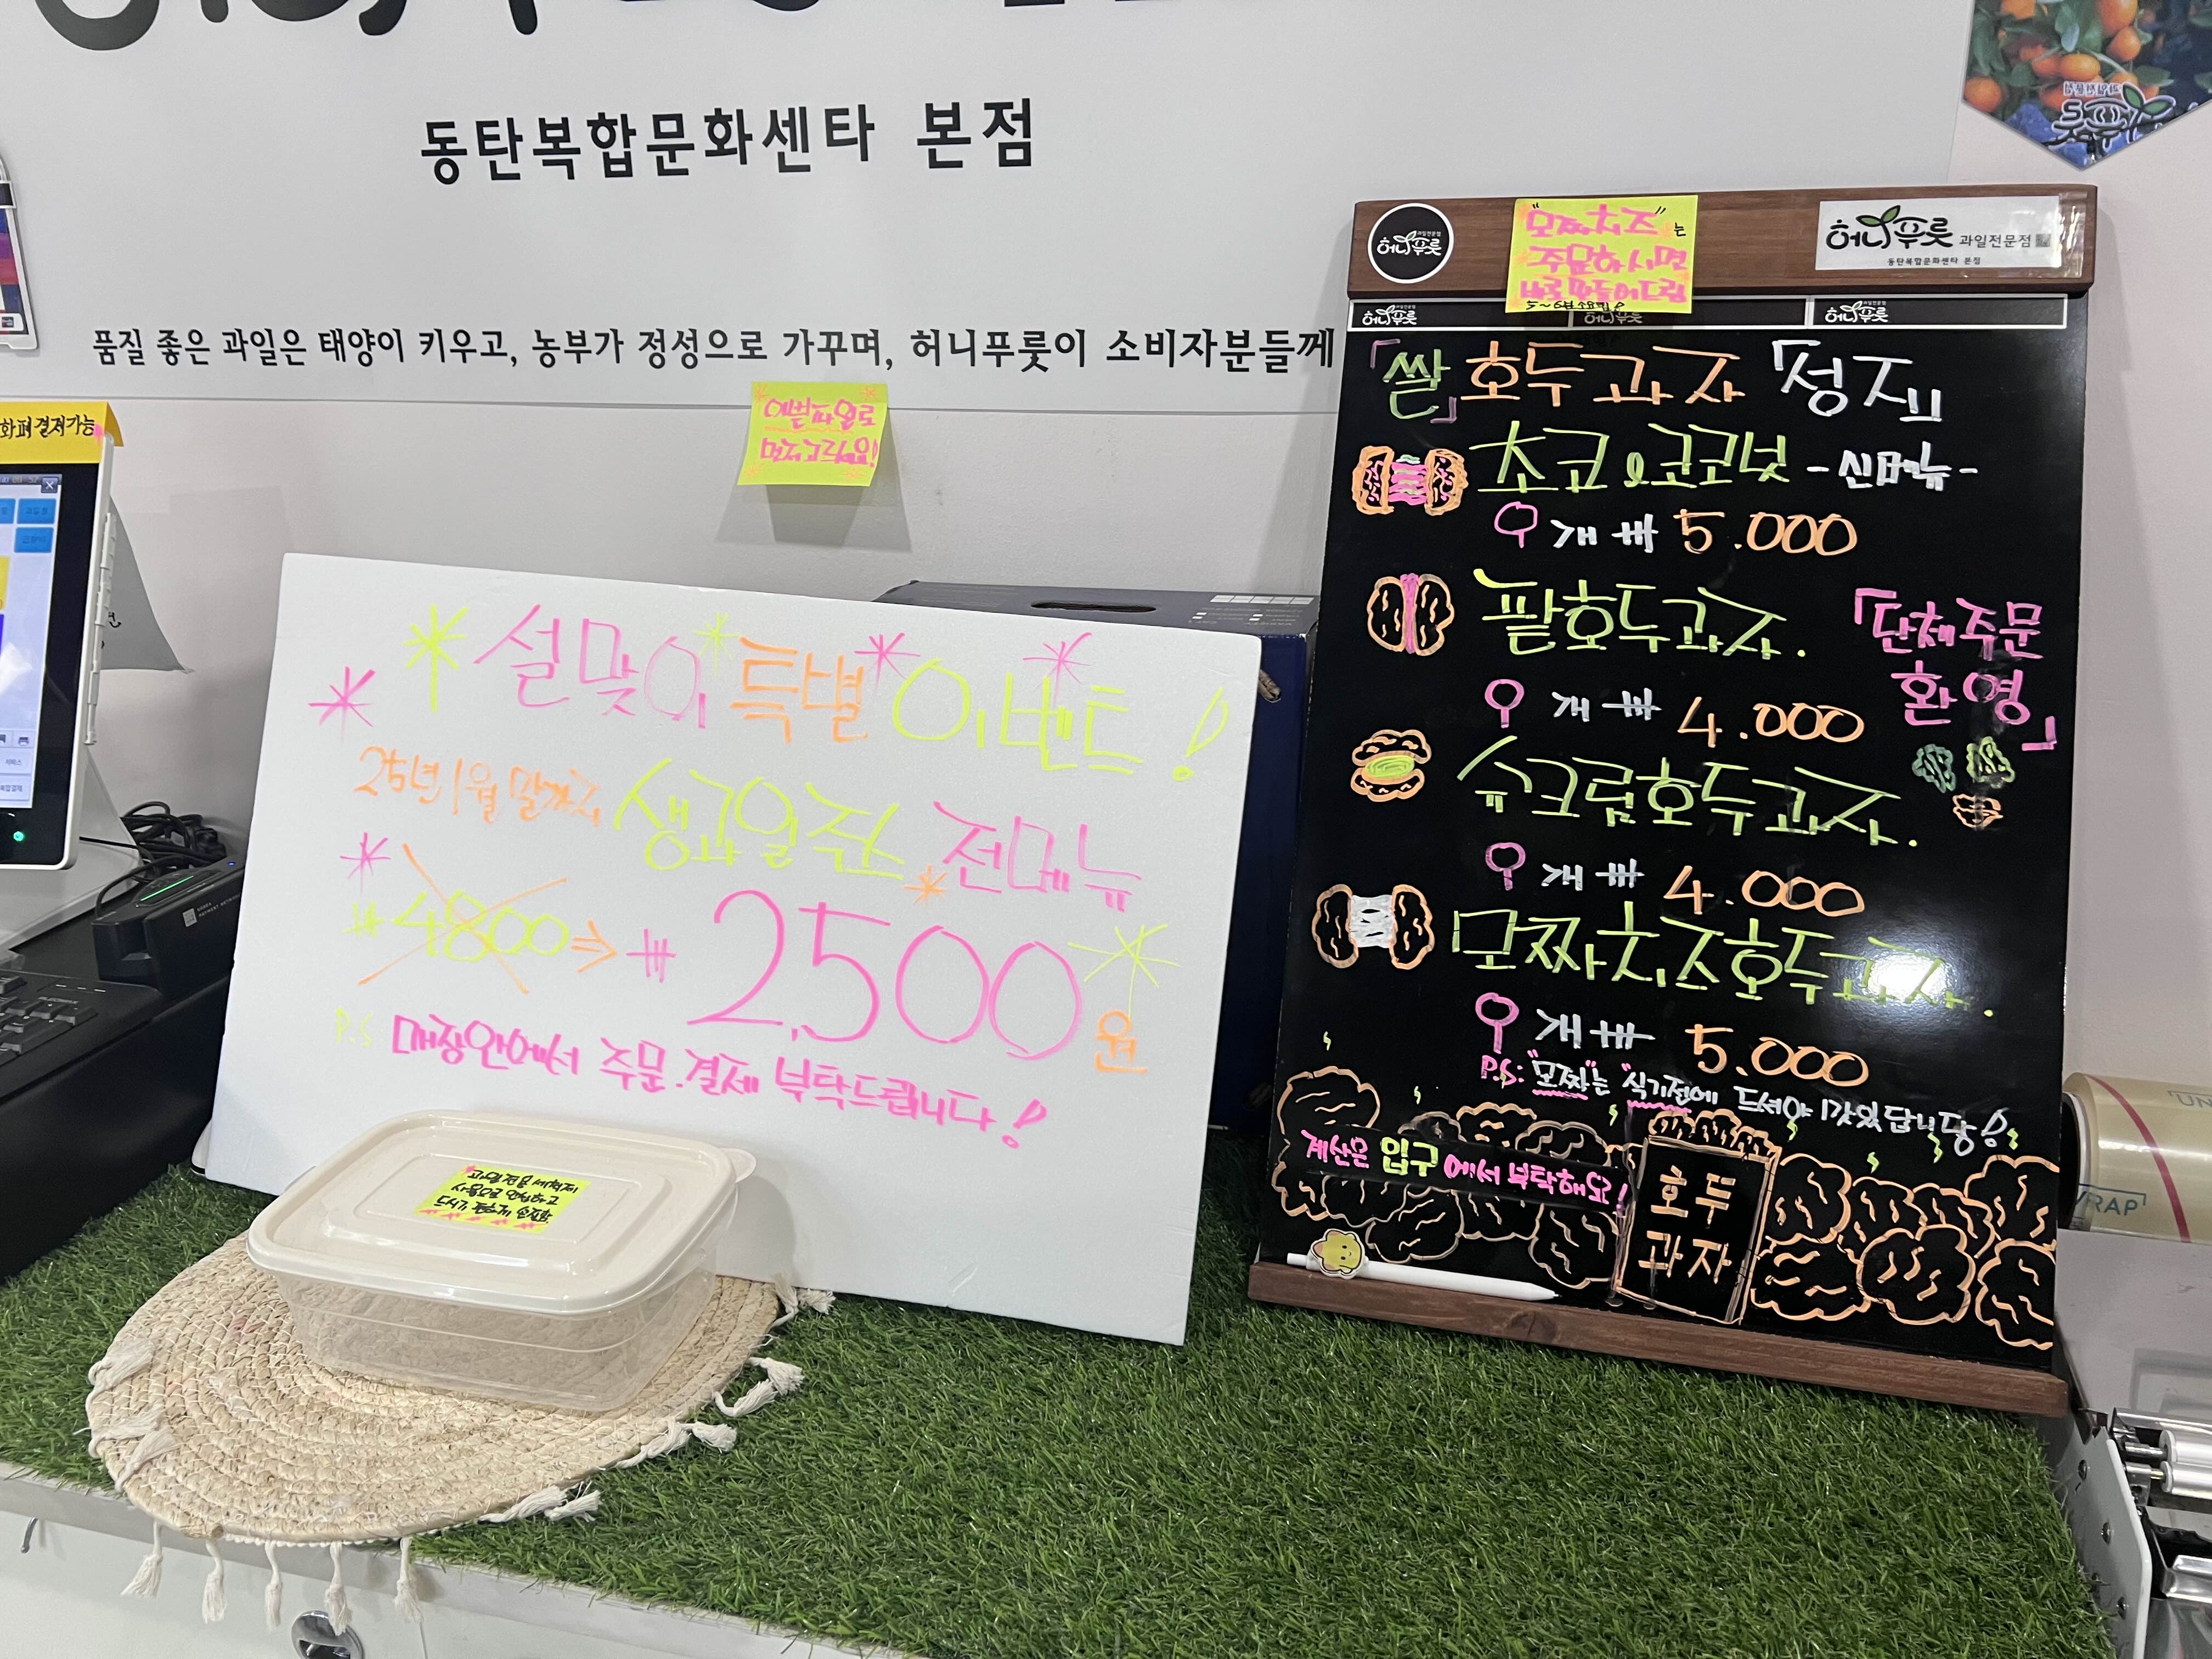 동탄복합문화센타 본점
품질 좋은 과일은 태양이 키우고, 농부가 정성으로 가꾸며, 허니푸룻이 소비자분들께
결제가능
예쁜파일로
먼저고르세요!
설맞이 특별 이벤트!
25년 1월 말까지 생과일쥬스 전메뉴
₩4800 ⇒ ₩2,500원
P.S 매장안에서 주문.결제 부탁드립니다!
과일전용 세척제
사용으로 안심하고
드시기 편하게 손질함
허니푸룻
"모짜치즈"는
주문하시면
바로만들어드림
5~6분 소요됨
허니푸룻 과일전문점
동탄복합문화센타 본점
허니푸룻 허니푸룻 허니푸룻
「쌀」호두과자 「성지」
초코&코코넛 -신메뉴-
9개 ₩ 5.000
팥호두과자.
「단체주문
환영」
9개 ₩ 4.000
슈크림호두과자.
9개 ₩ 4.000
모짜치즈호두과자.
9개 ₩ 5.000
P.S: "모짜"는 "식기전에 드셔야 맛있답니당!
계산은 입구에서 부탁해요!
호두
과자
WRAP